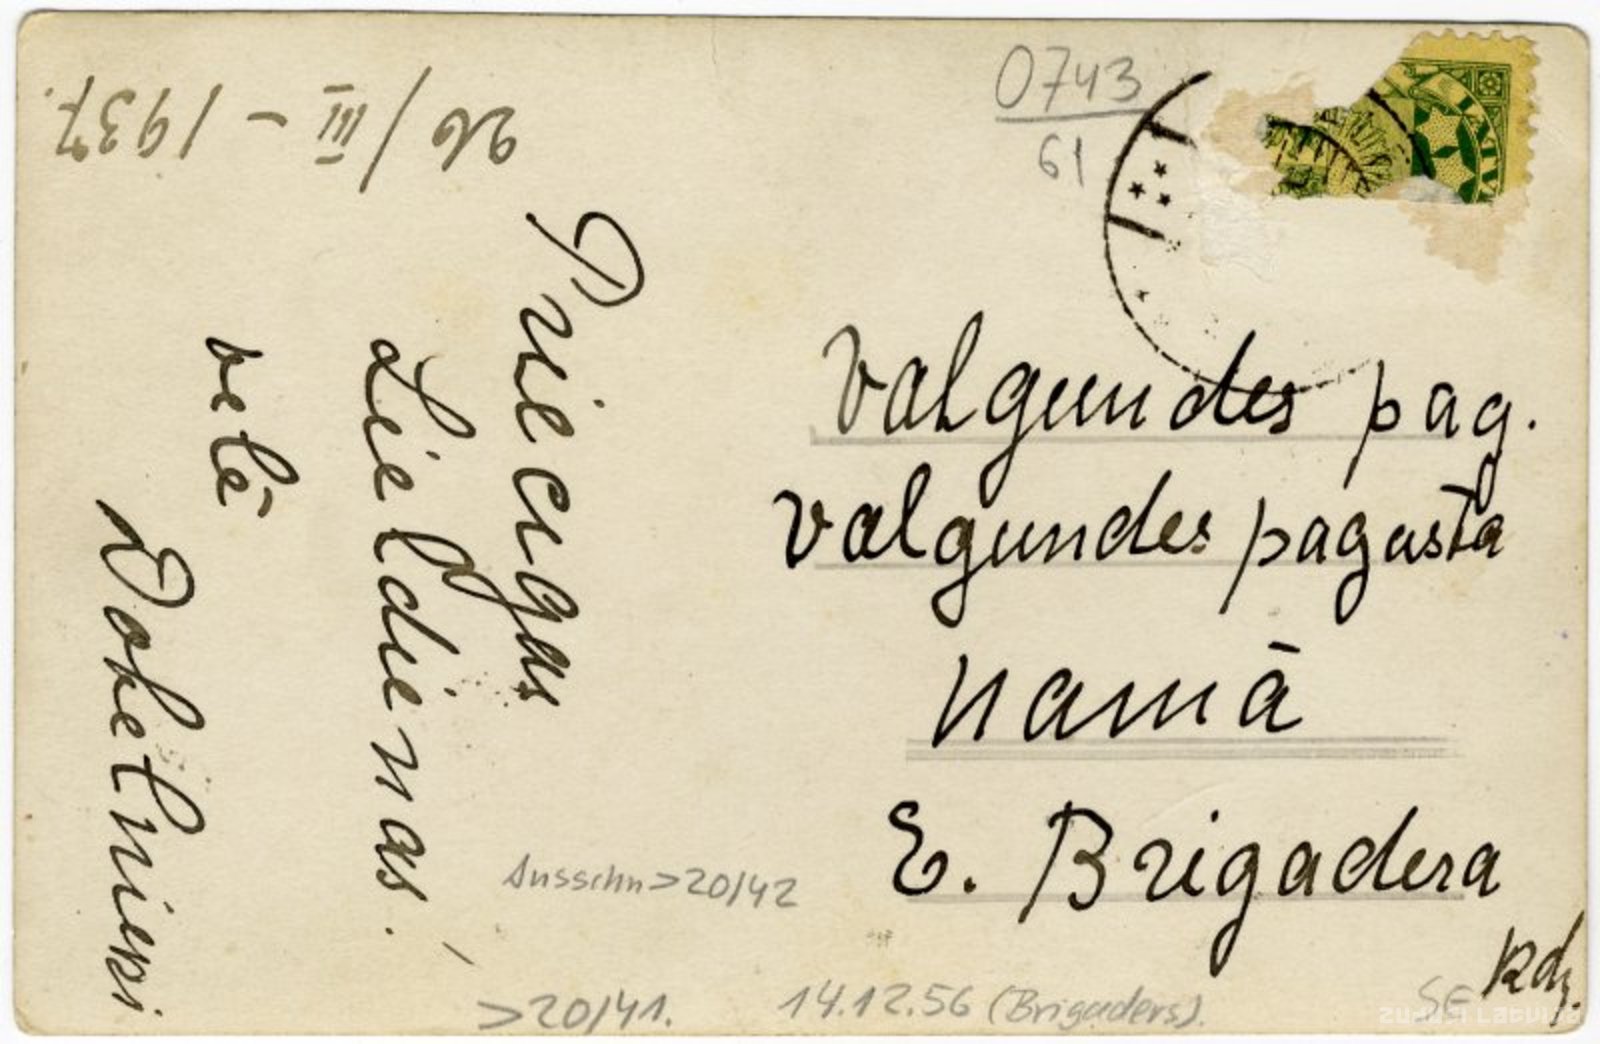 26/III - 1937.
Priecigas
Lieldienas!
vēlē
Dobelnieki
0743
61
LATVIJA
Valgundes pag.
Valgundes pagasta
namā
E. Brigadera
kdz.
Ausschn>20/42
>20/41.
14.12.56 (Brigaders).
SE
zudusi Latvija